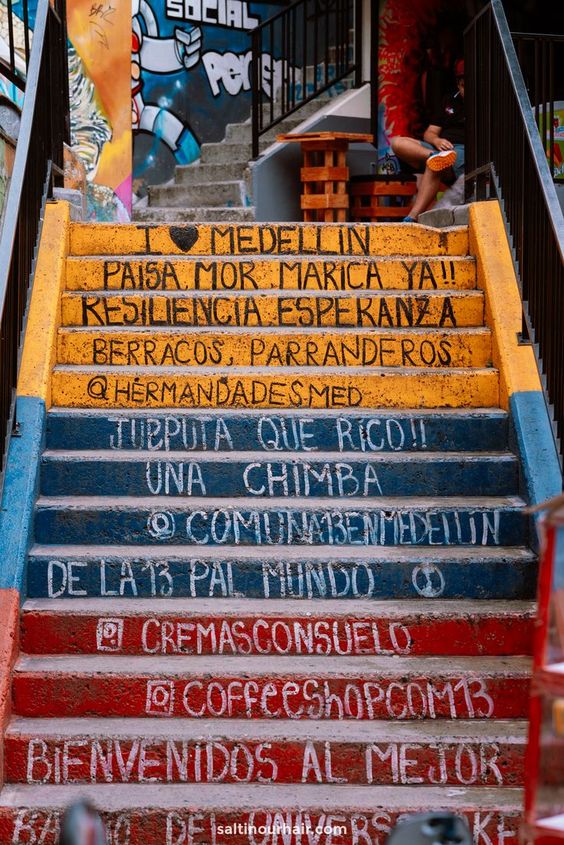 SOCIAL
I ♥ MEDELLIN
PAISA MOR MARICA YA!!
RESILIENCIA ESPERANZA
BERRACOS, PARRANDEROS
@HERMANDADESMED
JUEPUTA QUE RICO!!
UNA CHIMBA
@COMUNA13ENMEDELLIN
DE LA 13 PAL MUNDO
CREMASCONSUELO
COFFEESHOPCOM13
BIENVENIDOS AL MEJOR
DEL UNIVERSO
saltinourhair.com